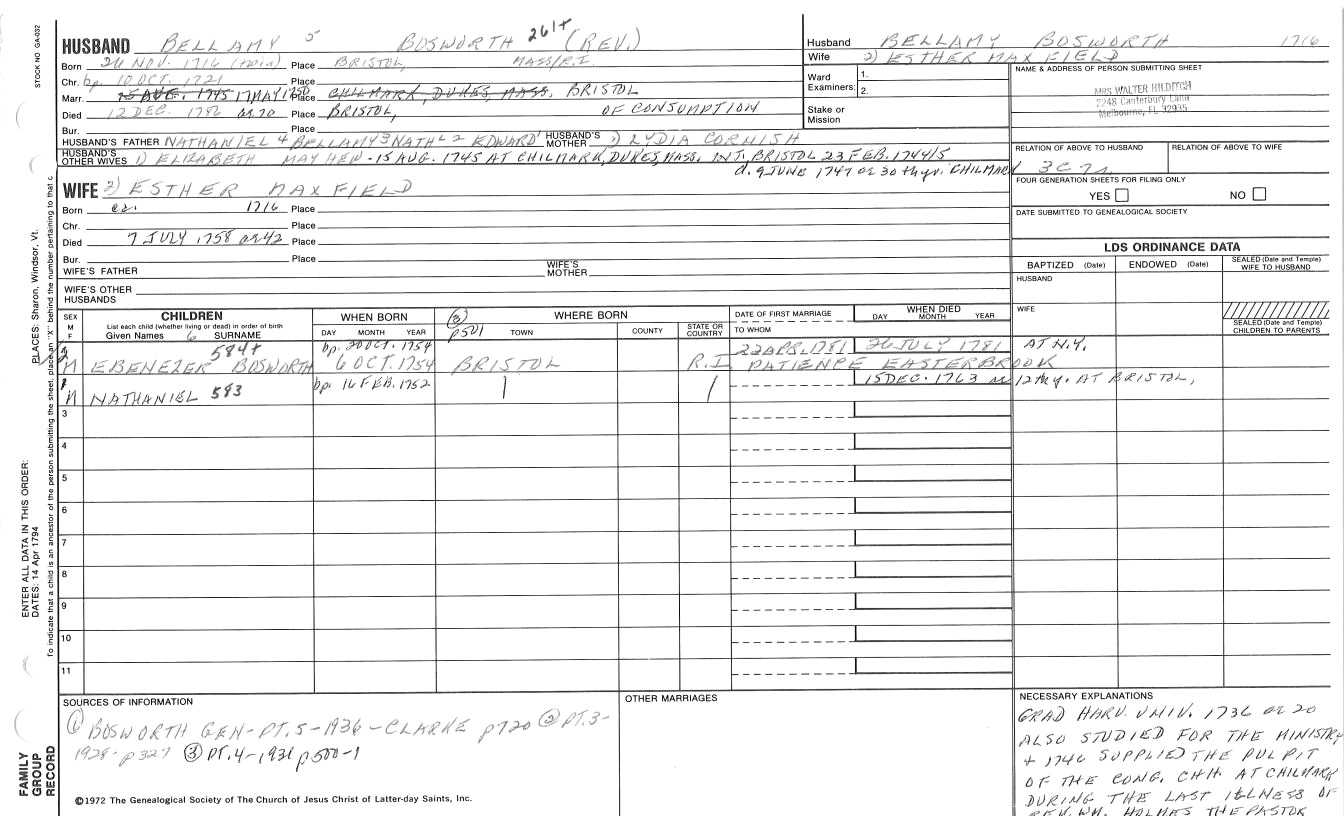 STOCK NO GA-032
HUSBAND BELLAMY 5 BOSWORTH 261+ (REV.)
Born 26 NOV. 1716 (twin) Place BRISTOL, MASS/R.I.
Chr. bp. 10 OCT. 1721
Marr. 15 AUG. 1745 17 MAY 1750 Place CHILMARK, DUKES, MASS. BRISTOL
Died 12 DEC. 1796 ae 70 Place BRISTOL, OF CONSUMPTION
Bur.
HUSBAND'S FATHER NATHANIEL 4 BELLAMY 3 NATHL 2 EDWARD 1 HUSBAND'S MOTHER 1) LYDIA CORNISH
HUSBAND'S OTHER WIVES 1) ELIZABETH MAYHEW - 15 AUG. 1745 AT CHILMARK, DUKES, MASS. INT. BRISTOL 23 FEB. 1744/5
d. 9 JUNE 1747 ae 30 thyr. CHILMARK
Husband BELLAMY BOSWORTH 1716
Wife 2) ESTHER MAXFIELD
Ward Examiners: 1.
2.
Stake or Mission
NAME & ADDRESS OF PERSON SUBMITTING SHEET
MRS WALTER HILDITCH
2248 Canterbury Lane
Melbourne, FL 32935
RELATION OF ABOVE TO HUSBAND RELATION OF ABOVE TO WIFE
3C7r.
FOUR GENERATION SHEETS FOR FILING ONLY
YES NO
DATE SUBMITTED TO GENEALOGICAL SOCIETY
WIFE 2) ESTHER MAXFIELD
Born ca. 1716 Place
Chr. Place
Died 7 JULY 1758 ae 42 Place
Bur. Place
WIFE'S FATHER WIFE'S MOTHER
WIFE'S OTHER HUSBANDS
LDS ORDINANCE DATA
BAPTIZED (Date) ENDOWED (Date) SEALED (Date and Temple) WIFE TO HUSBAND
HUSBAND
WIFE
SEALED (Date and Temple) CHILDREN TO PARENTS
SEX M F
CHILDREN
List each child (whether living or dead) in order of birth
Given Names 6 SURNAME
WHEN BORN
DAY MONTH YEAR
(3) p501
WHERE BORN
TOWN COUNTY STATE OR COUNTRY
DATE OF FIRST MARRIAGE
TO WHOM
WHEN DIED
DAY MONTH YEAR
584+ bp. 20 OCT. 1754 22 APR. 1781 26 JULY 1781 AT N.Y.
2 M EBENEZER BOSWORTH 6 OCT. 1754 BRISTOL R.I. PATIENCE EASTERBROOK
1 M NATHANIEL 583 bp. 16 FEB. 1752 15 DEC. 1763 ae 12thy. AT BRISTOL,
3
4
5
6
7
8
9
10
11
SOURCES OF INFORMATION
(1) BOSWORTH GEN-PT.5-1936-CLARKE p720 (2) PT.3-
1928-p327 (3) PT.4-1931 p500-1
OTHER MARRIAGES
NECESSARY EXPLANATIONS
GRAD HARV. UNIV. 1736 ae 20
ALSO STUDIED FOR THE MINISTRY
+ 1746 SUPPLIED THE PULPIT
OF THE CONG. CHH. AT CHILMARK
DURING THE LAST ILLNESS OF
REV. WM. HOLMES THE PASTOR
©1972 The Genealogical Society of The Church of Jesus Christ of Latter-day Saints, Inc.
PLACES: Sharon, Windsor, Vt.
To indicate that a child is an ancestor of the person submitting the sheet, place an "X" behind the number pertaining to that c
ENTER ALL DATA IN THIS ORDER:
DATES: 14 Apr 1794
FAMILY GROUP RECORD